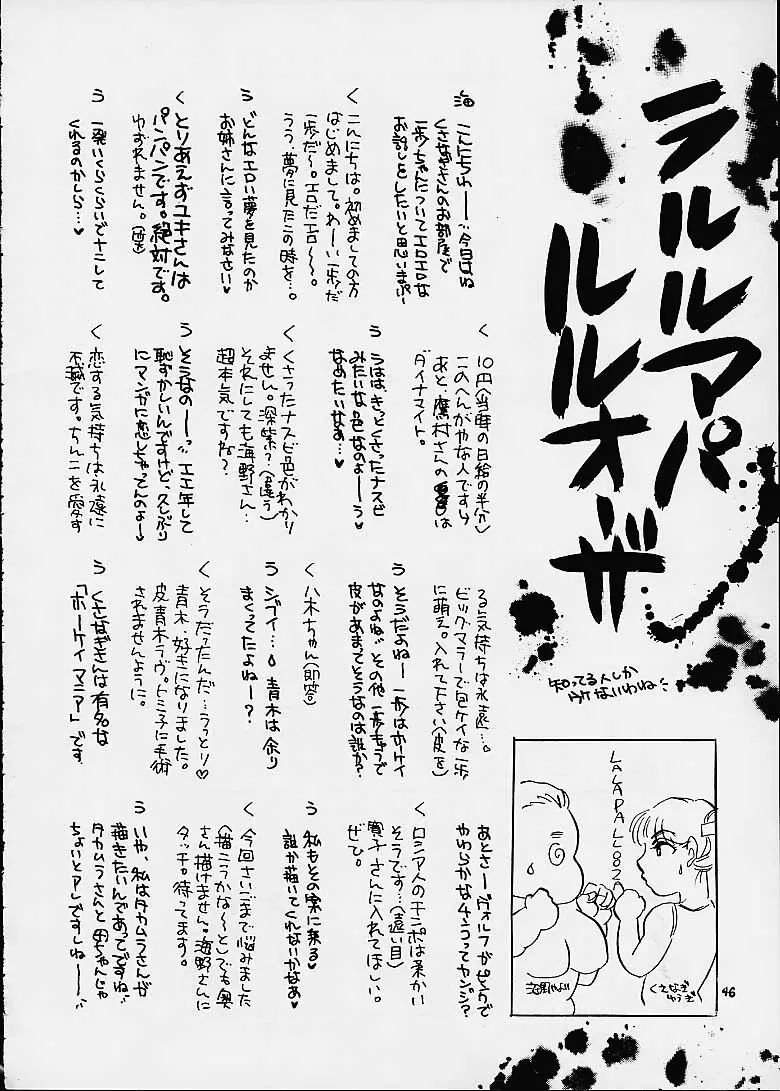 ラルルアパ
ルルオーザ
知ってる人しか
ウケないわね
海 こんにちわーー今日はね
くさなぎさんのお部屋で
一歩ちゃんについてエロエロな
お話しをしたいと思いまぷー
く こんにちは。初めましての方
はじめまして。わーい一歩だ
一歩だ〜。エロだエロ〜〜。
うう、夢に見たこの時を…。
う どんなエロい夢を見たのか
お姉さんに言ってみなさい♥
く とりあえずユキさんは
パンパンです。絶対です。
ゆずれません。
う 一発いくらくらいでナニして
くれるのかしら…♥
く 10円(当時の日給の半分)
このへんがやな人ですら
あと、鷹村さんの
は
ダイナマイト。
う うはは、きっとくさったナスビ
みたいな色なのよーーう
なめたいなぁ…♥
く くさったナスビ色がわかり
ません。深紫?(違う)
それにしても海野さん…
超本気ですね?
う そうなのーーっ エエ年して
恥ずかしいんですけど、久しぶり
にマンガに恋しちゃってんのよー
く 恋する気持ちは永遠に
不滅です。ちんこを愛す
る気持ちは永遠…。
ビッグマラーで包ケイな一歩
に萌え。入れて下さい(皮を)
う そうだよねー 一歩はホーケイ
なのよね その他一歩ちゅうで
皮があまってそうなのは誰か?
く 八木ちゃん(即答)
う シブイ…。青木は余り
まくってたよねー?
く そうだったんだ…うっとり♡
青木、好きになりました。
皮青木ラヴ。トミ子に手術
されませんように。
う くさなぎさんは有名な
「ホーケイマニア」です
あとさーヴォルフがピンクで
やわらかなチンコってカンジ?
く ロシア人のチンポは柔かい
そうです…(遠い目)
寛子さんに入れてほしい。
ぜひ。
う 私もその案に来る♥
誰か描いてくれないかなあ♥
く 今回さいごまで悩みました
(描こうかな〜と)でも奥
さん描けません。海野さんに
タッチ。待ってます。
う いや、私はタカムラさんが
描きたいんであってですね
タカムラさんと母ちゃんじゃ
ちょいとアレですしねーー
LALAPALOOZA
くさなぎ
ゆうぎ
46